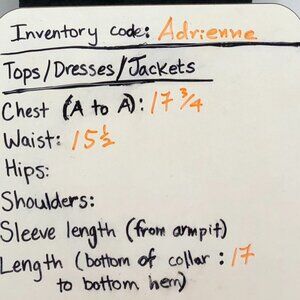 Inventory code: Adrienne
Tops/Dresses/Jackets
Chest (A to A): 17 3/4
Waist: 15 1/2
Hips:
Shoulders:
Sleeve length (from armpit)
Length (bottom of collar : 17
to bottom hem)